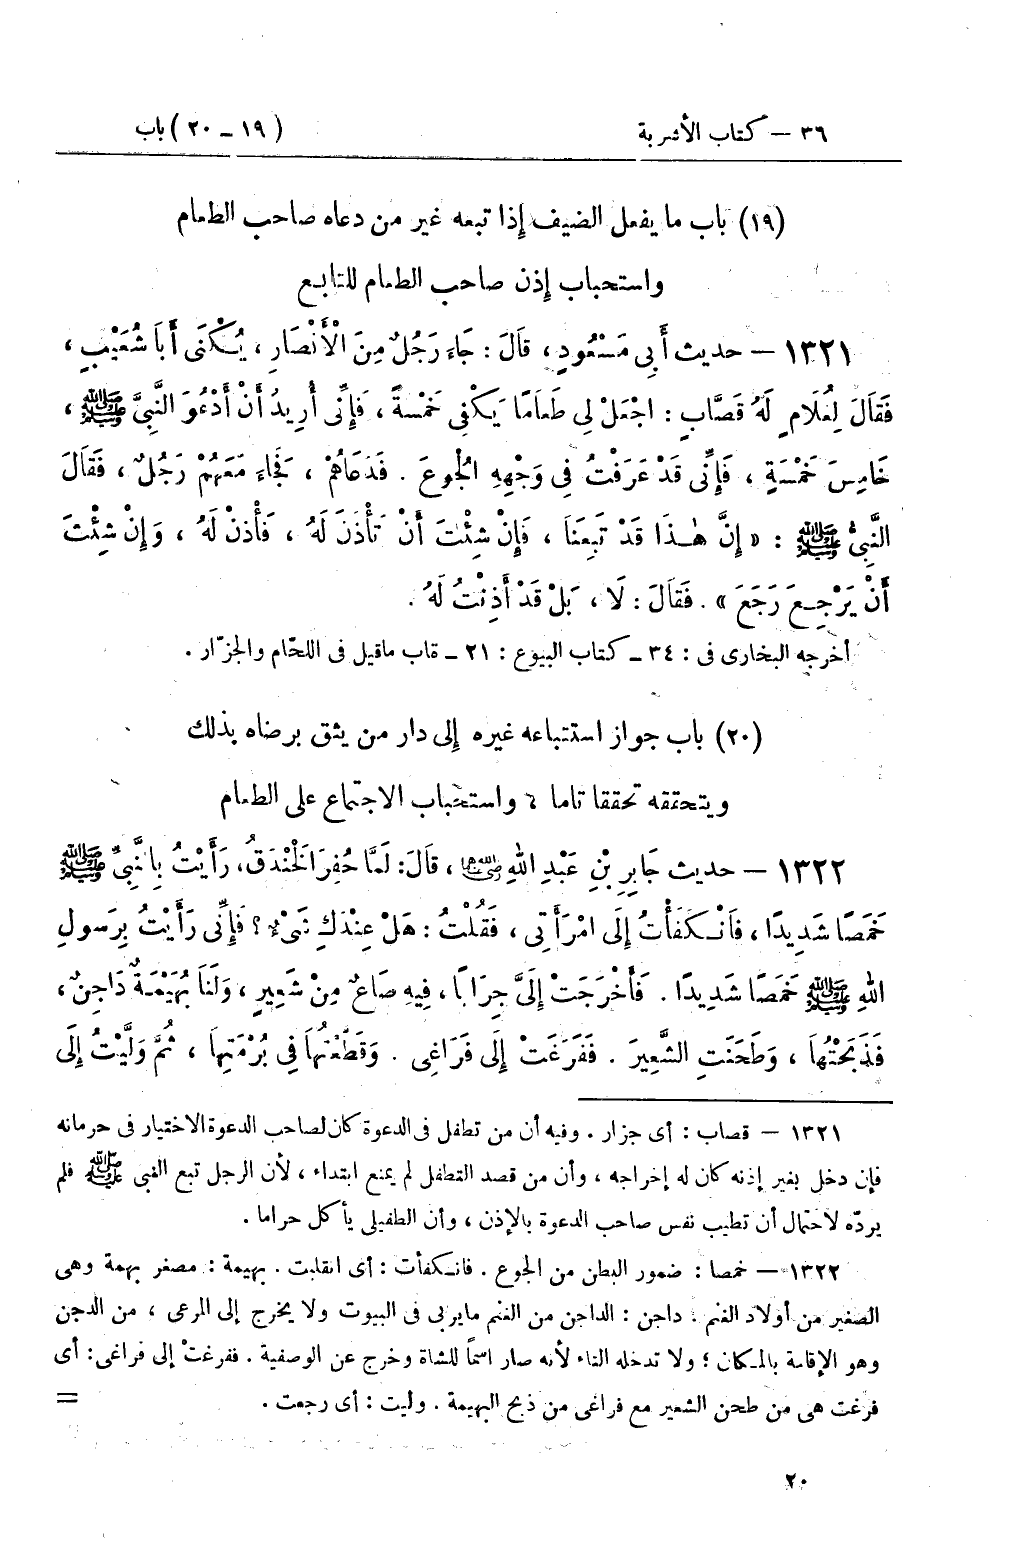 ٣٦ — كتاب الأشربة (١٩ – ٢٠) باب
(١٩) باب ما يفعل الضيف إذا تبعه غير من دعاه صاحب الطعام
واستحباب إذن صاحب الطعام للتابع
١٣٢١ — حديث أَبِي مَسْعُودٍ، قَالَ: جَاءَ رَجُلٌ مِنَ الْأَنْصَارِ، يُكْنَى أَبَا شُعَيْبٍ،
فَقَالَ لِغُلَامٍ لَهُ قَصَّابٍ: اجْعَلْ لِي طَعَامًا يَكْفِي خَمْسَةً، فَإِنِّي أُرِيدُ أَنْ أَدْعُوَ النَّبِيَّ ﷺ،
خَامِسَ خَمْسَةٍ، فَإِنِّي قَدْ عَرَفْتُ فِي وَجْهِهِ الْجُوعَ. فَدَعَاهُمْ، فَجَاءَ مَعَهُمْ رَجُلٌ، فَقَالَ
النَّبِيُّ ﷺ: «إِنَّ هٰذَا قَدْ تَبِعَنَا، فَإِنْ شِئْتَ أَنْ تَأْذَنَ لَهُ، فَأْذَنْ لَهُ، وَإِنْ شِئْتَ
أَنْ يَرْجِعَ رَجَعَ». فَقَالَ: لَا، بَلْ قَدْ أَذِنْتُ لَهُ.
أخرجه البخارى فى: ٣٤ – كتاب البيوع: ٢١ – قاب ماقيل فى اللحّام والجزّار.
(٢٠) باب جواز استتباعه غيره إلى دار من يثق برضاه بذلك
ويتحققه تحققا تاما، واستحباب الاجتماع على الطعام
١٣٢٢ — حديث جَابِرِ بْنِ عَبْدِ اللهِ رضي الله عنهما، قَالَ: لَمَّا حُفِرَ الْخَنْدَقُ، رَأَيْتُ بِالنَّبِيِّ ﷺ
خَمَصًا شَدِيدًا، فَانْكَفَأْتُ إِلَى امْرَأَتِي، فَقُلْتُ: هَلْ عِنْدَكِ شَيْءٌ؟ فَإِنِّي رَأَيْتُ بِرَسُولِ
اللهِ ﷺ خَمَصًا شَدِيدًا. فَأَخْرَجَتْ إِلَيَّ جِرَابًا، فِيهِ صَاعٌ مِنْ شَعِيرٍ، وَلَنَا بُهَيْمَةٌ دَاجِنٌ،
فَذَبَحْتُهَا، وَطَحَنَتِ الشَّعِيرَ. فَفَرَغَتْ إِلَى فَرَاغِي. وَقَطَّعْتُهَا فِي بُرْمَتِهَا، ثُمَّ وَلَّيْتُ إِلَى
١٣٢١ — قصاب: أى جزار. وفيه أن من تطفل فى الدعوة كان لصاحب الدعوة الاختيار فى حرمانه
فإن دخل بغير إذنه كان له إخراجه، وأن من قصد التطفل لم يمنع ابتداء، لأن الرجل تبع النبى ﷺ فلم
يردّه لاحتمال أن تطيب نفس صاحب الدعوة بالإذن، وأن الطفيلى يأكل حراما.
١٣٢٢ — خمصا: ضمور البطن من الجوع. فانكفأت: أى انقلبت. بهيمة: مصغر بهمة وهى
الصغير من أولاد الغنم. داجن: الداجن من الغنم مايربى فى البيوت ولا يخرج إلى المرعى، من الدجن
وهو الإقامة بالمكان؛ ولا تدخله التاء لأنه صار اسمًا للشاة وخرج عن الوصفية. ففرغتْ إلى فراغى: أى
فرغت هى من طحن الشعير مع فراغى من ذبح البهيمة. وليت: أى رجعت. =
٢٠